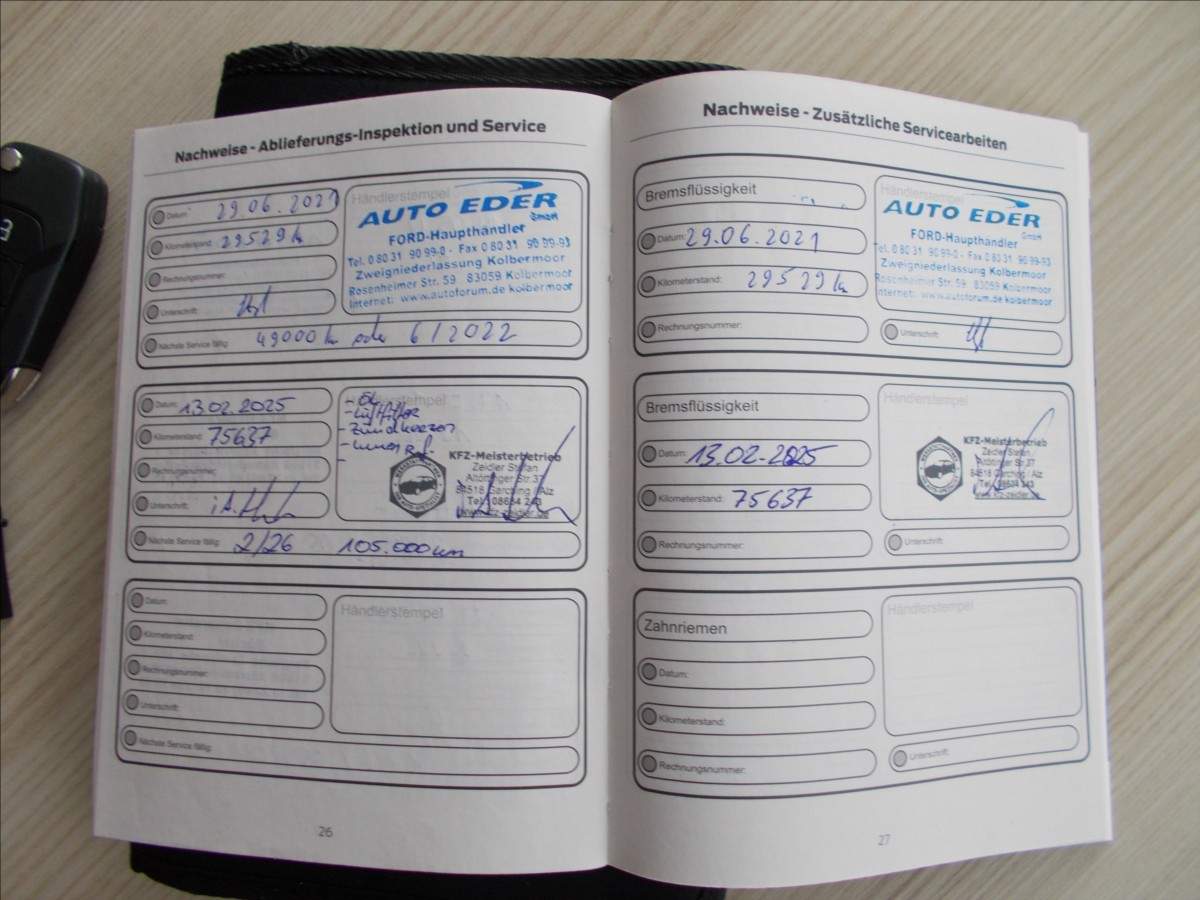 Nachweise - Ablieferungs-Inspektion und Service
Datum: 29.06.2021
Kilometerstand: 29529 km
Rechnungsnummer:
Unterschrift:
Nächste Service fällig: 49000 km oder 6/2022
Händlerstempel
AUTO EDER
GmbH
FORD-Haupthändler
Tel. 0 80 31 90 99-0 - Fax 0 80 31 90 99-93
Zweigniederlassung Kolbermoor
Rosenheimer Str. 59 83059 Kolbermoor
Internet: www.autoforum.de kolbermoor
Datum: 13.02.2025
Kilometerstand: 75637
Rechnungsnummer:
Unterschrift: i.A.
Nächste Service fällig: 2/26 105.000km
Händlerstempel
- Öl
- Luftfilter
- Zündkerzen
- Innen
KFZ-Meisterbetrieb
Zeidler Stefan
Altöttinger Str. 37
84518 Garching / Alz
Tel.: 08634 243
www.kfz-zeidler.de
Datum:
Kilometerstand:
Rechnungsnummer:
Unterschrift:
Nächste Service fällig:
Händlerstempel
26
Nachweise - Zusätzliche Servicearbeiten
Bremsflüssigkeit
Datum: 29.06.2021
Kilometerstand: 29529 km
Rechnungsnummer:
Händlerstempel
AUTO EDER
GmbH
FORD-Haupthändler
Tel. 0 80 31 90 99-0 - Fax 0 80 31 90 99-93
Zweigniederlassung Kolbermoor
Rosenheimer Str. 59 83059 Kolbermoor
Internet: www.autoforum.de kolbermoor
Unterschrift:
Bremsflüssigkeit
Datum: 13.02.2025
Kilometerstand: 75637
Rechnungsnummer:
Händlerstempel
KFZ-Meisterbetrieb
Zeidler Stefan
Altöttinger Str. 37
84518 Garching / Alz
Tel.: 08634 243
www.kfz-zeidler.de
Unterschrift:
Zahnriemen
Datum:
Kilometerstand:
Rechnungsnummer:
Händlerstempel
Unterschrift:
27